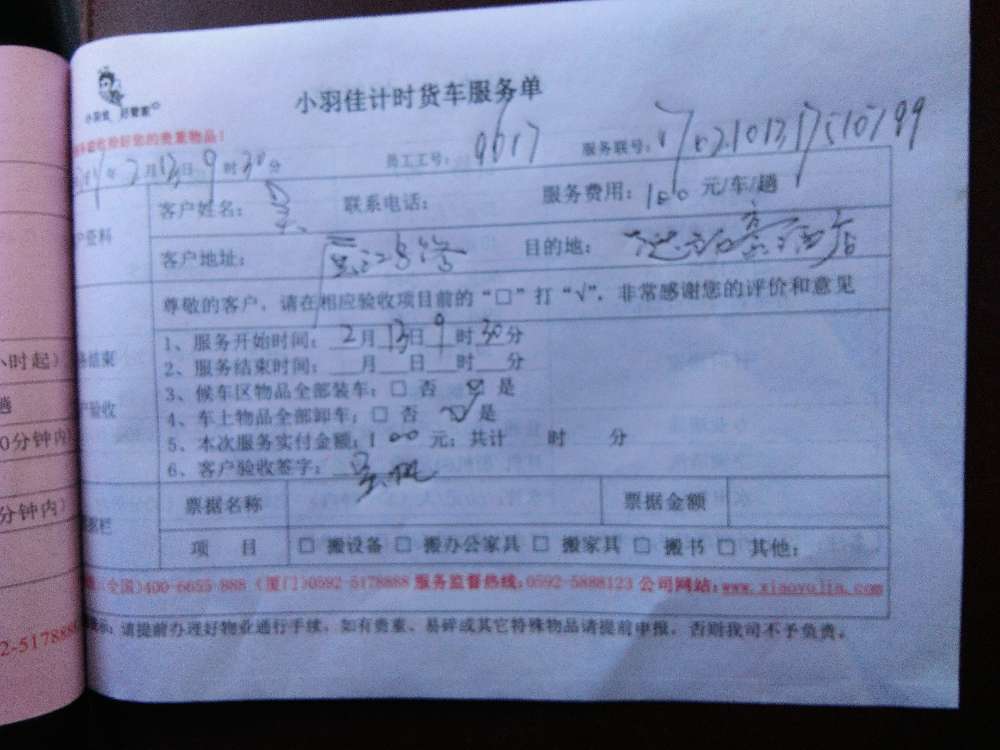 小羽佳 好管家
小羽佳计时货车服务单
好您的贵重物品！
年 2月13日9时30分 员工工号：9617 服务联号：
客户姓名：吴 联系电话： 服务费用：100元/车/趟
户资料
客户地址： 目的地：
尊敬的客户，请在相应验收项目前的“□”打“√”，非常感谢您的评价和意见
1、服务开始时间：2月13日9时30分
2、服务结束时间： 月 日 时 分
3、候车区物品全部装车：□ 否 ☑ 是
4、车上物品全部卸车：□ 否 ☑ 是
5、本次服务实付金额：100元；共计 时 分
6、客户验收签字：
票据名称 票据金额
项 目 □ 搬设备 □ 搬办公家具 □ 搬家具 □ 搬书 □ 其他：
全国)400-6655-888 (厦门)0592-5178888 服务监督热线：0592-5888123 公司网站：www.xiaoyujia.com
请提前办理好物业通行手续，如有贵重、易碎或其它特殊物品请提前申报，否则我司不予负责。
小时起）
趟
0分钟内
分钟内）
2-5178888